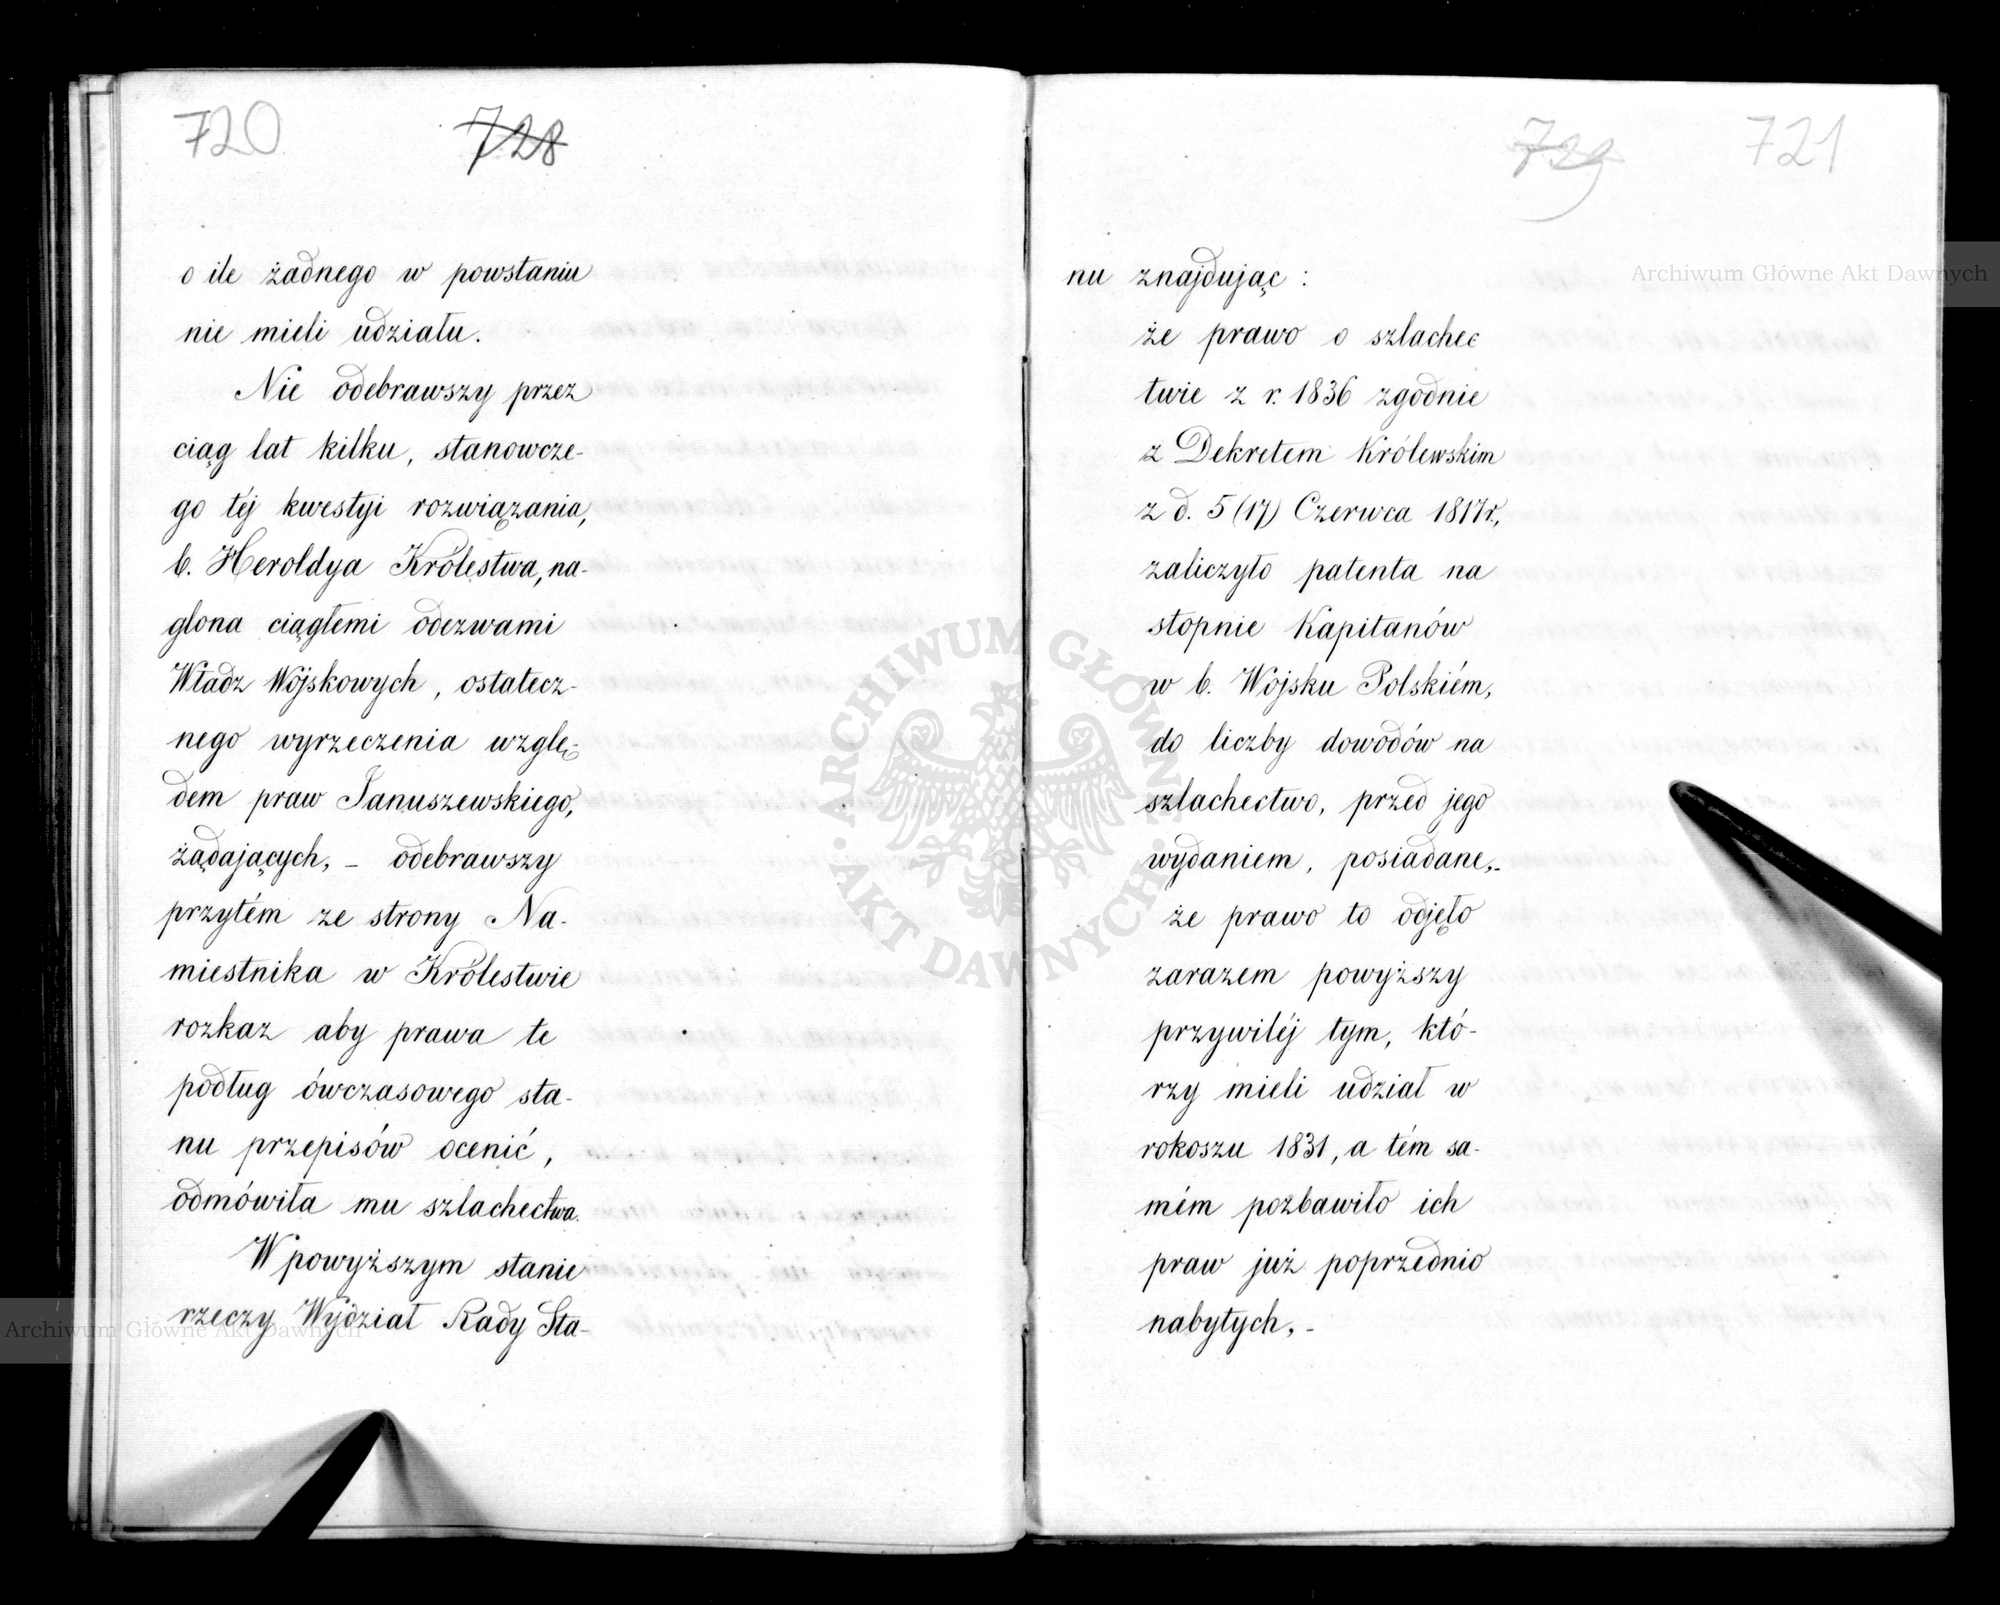 720 728
o ile żadnego w powstaniu
nie mieli udziału.
Nie odebrawszy przez
ciąg lat kilku, stanowcze-
go téj kwestyi rozwiązania,
b. Heroldya Królestwa, na-
glona ciągłemi odezwami
Władz Wojskowych, ostatecz-
nego wyrzeczenia wzglę-
dem praw Januszewskiego,
żądających, – odebrawszy
przytém ze strony Na-
miestnika w Królestwie
rozkaz aby prawa te
podług ówczasowego sta-
nu przepisów ocenić,
odmówiła mu szlachectwa.
W powyższym stanie
rzeczy Wydział Rady Sta-
729 721
nu znajdując :
że prawo o szlachec
twie z r. 1836 zgodnie
z Dekretem Królewskim
z d. 5 (17) Czerwca 1817 r.,
zaliczyło patenta na
stopnie Kapitanów
w b. Wojsku Polskiém,
do liczby dowodów na
szlachectwo, przed jego
wydaniem, posiadane,-
że prawo to odjęło
zarazem powyższy
przywiléj tym, któ-
rzy mieli udział w
rokoszu 1831, a tém sa-
mém pozbawiło ich
praw już poprzednio
nabytych, -
Archiwum Główne Akt Dawnych
Archiwum Główne Akt Dawnych
ARCHIWUM GŁÓWNE
AKT DAWNYCH